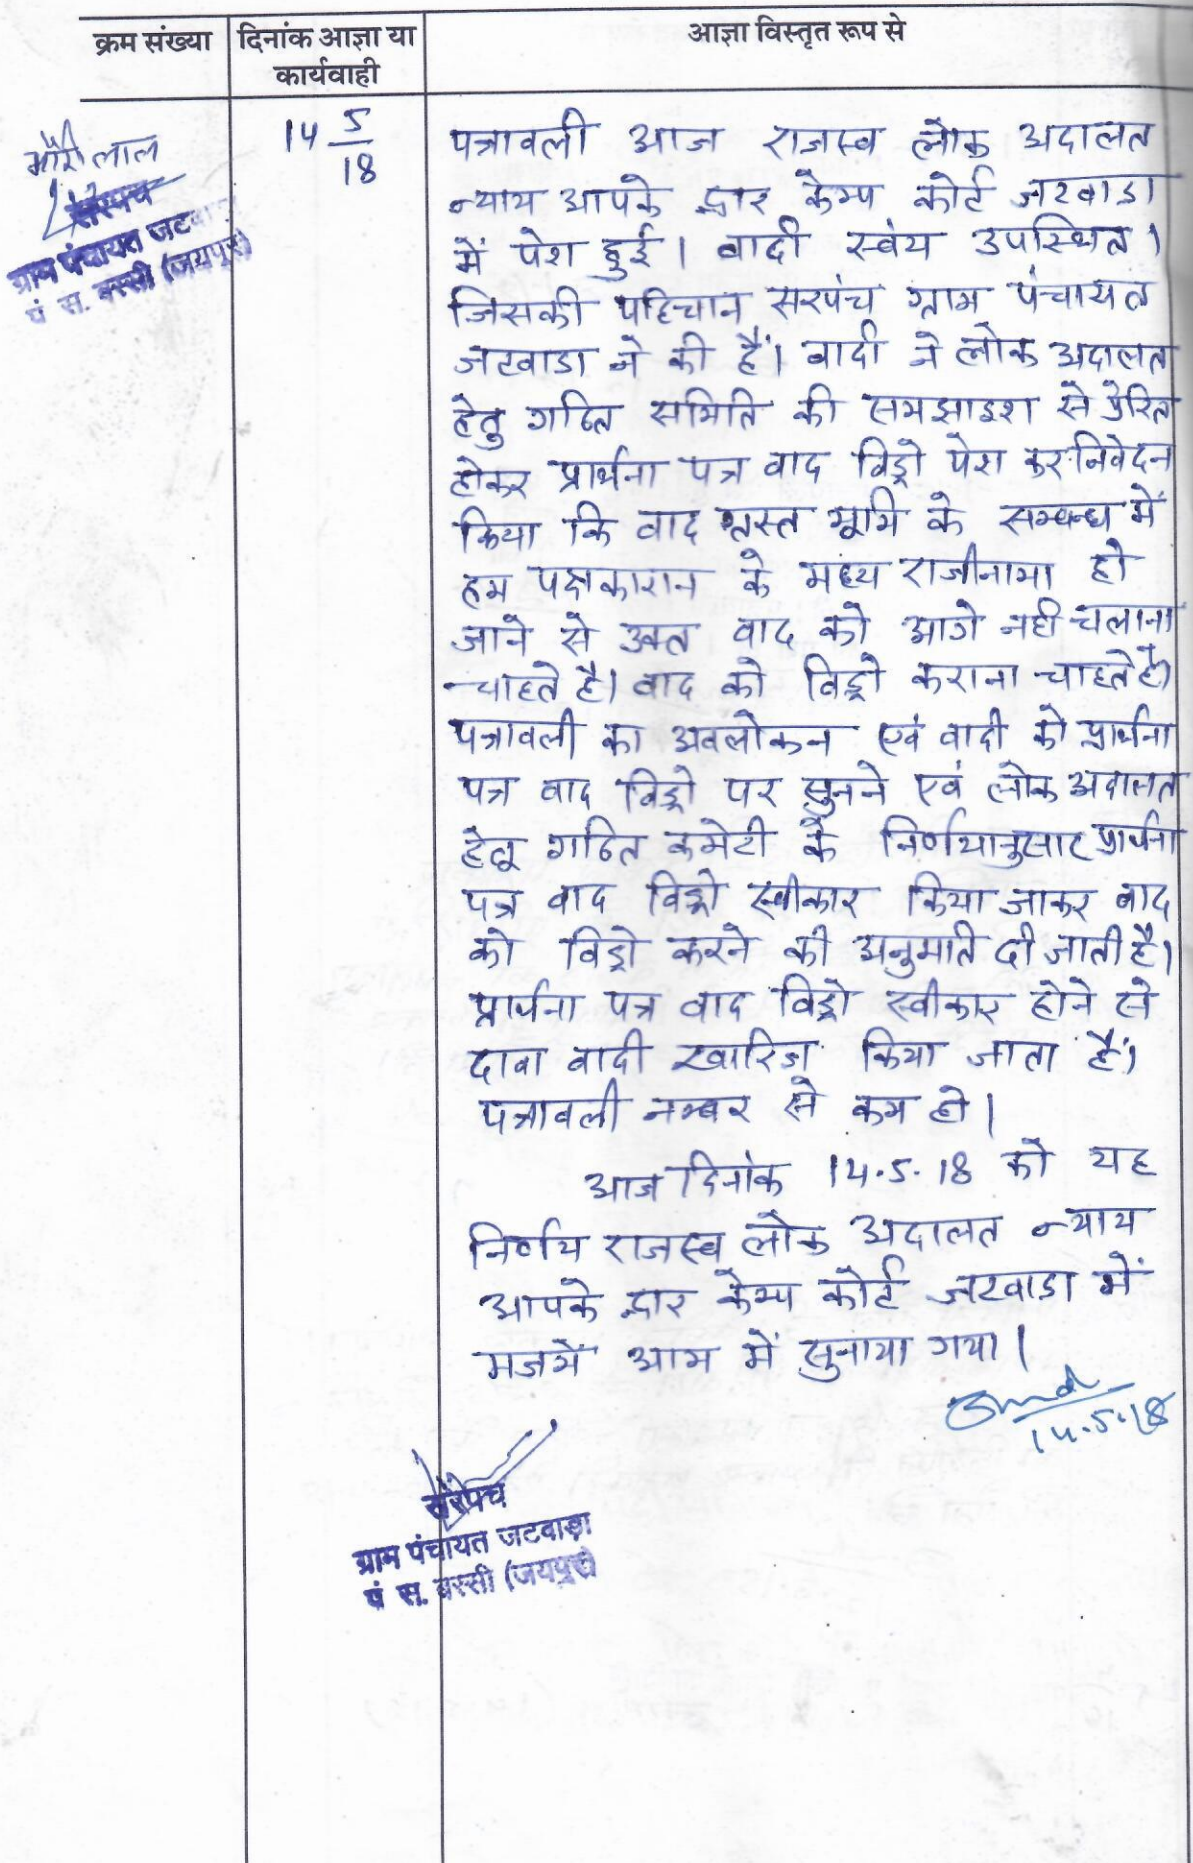 क्रम संख्या
दिनांक आज्ञा या
कार्यवाही
आज्ञा विस्तृत रूप से
लाल
सरपंच
ग्राम पंचायत
पं स. बस्सी (जयपुर)
14 5/18
पत्रावली आज राजस्व लोक अदालत
न्याय आपके द्वार केम्प कोर्ट जटवाडा
में पेश हुई। वादी स्वंय उपस्थित।
जिसकी पहिचान सरपंच ग्राम पंचायत
जटवाडा ने की हैं। वादी ने लोक अदालत
हेतु गठित समिति की समझाइश से प्रेरित
होकर प्रार्थना पत्र वाद विड्रो पेश कर निवेदन
किया कि वाद ग्रस्त भूमि के सम्बन्ध में
हम पक्षकारान के मध्य राजीनामा हो
जाने से अत वाद को आगे नही चलाना
चाहते है। वाद को विड्रो कराना चाहते है।
पत्रावली का अवलोकन एवं वादी को प्रार्थना
पत्र वाद विड्रो पर सुनने एवं लोक अदालत
हेतू गठित कमेटी के निर्णयानुसार प्रार्थना
पत्र वाद विड्रो स्वीकार किया जाकर वाद
को विड्रो करने की अनुमति दी जाती है।
प्रार्थना पत्र वाद विड्रो स्वीकार होने से
दावा वादी खारिज किया जाता हैं।
पत्रावली नम्बर से कम हो।
आज दिनांक 14.5.18 को यह
निर्णय राजस्व लोक अदालत न्याय
आपके द्वार केम्प कोर्ट जटवाडा में
मजमें आम में सुनाया गया।
14.5.18
सरपंच
ग्राम पंचायत जटवाड़ा
पं स. बस्सी (जयपुर)